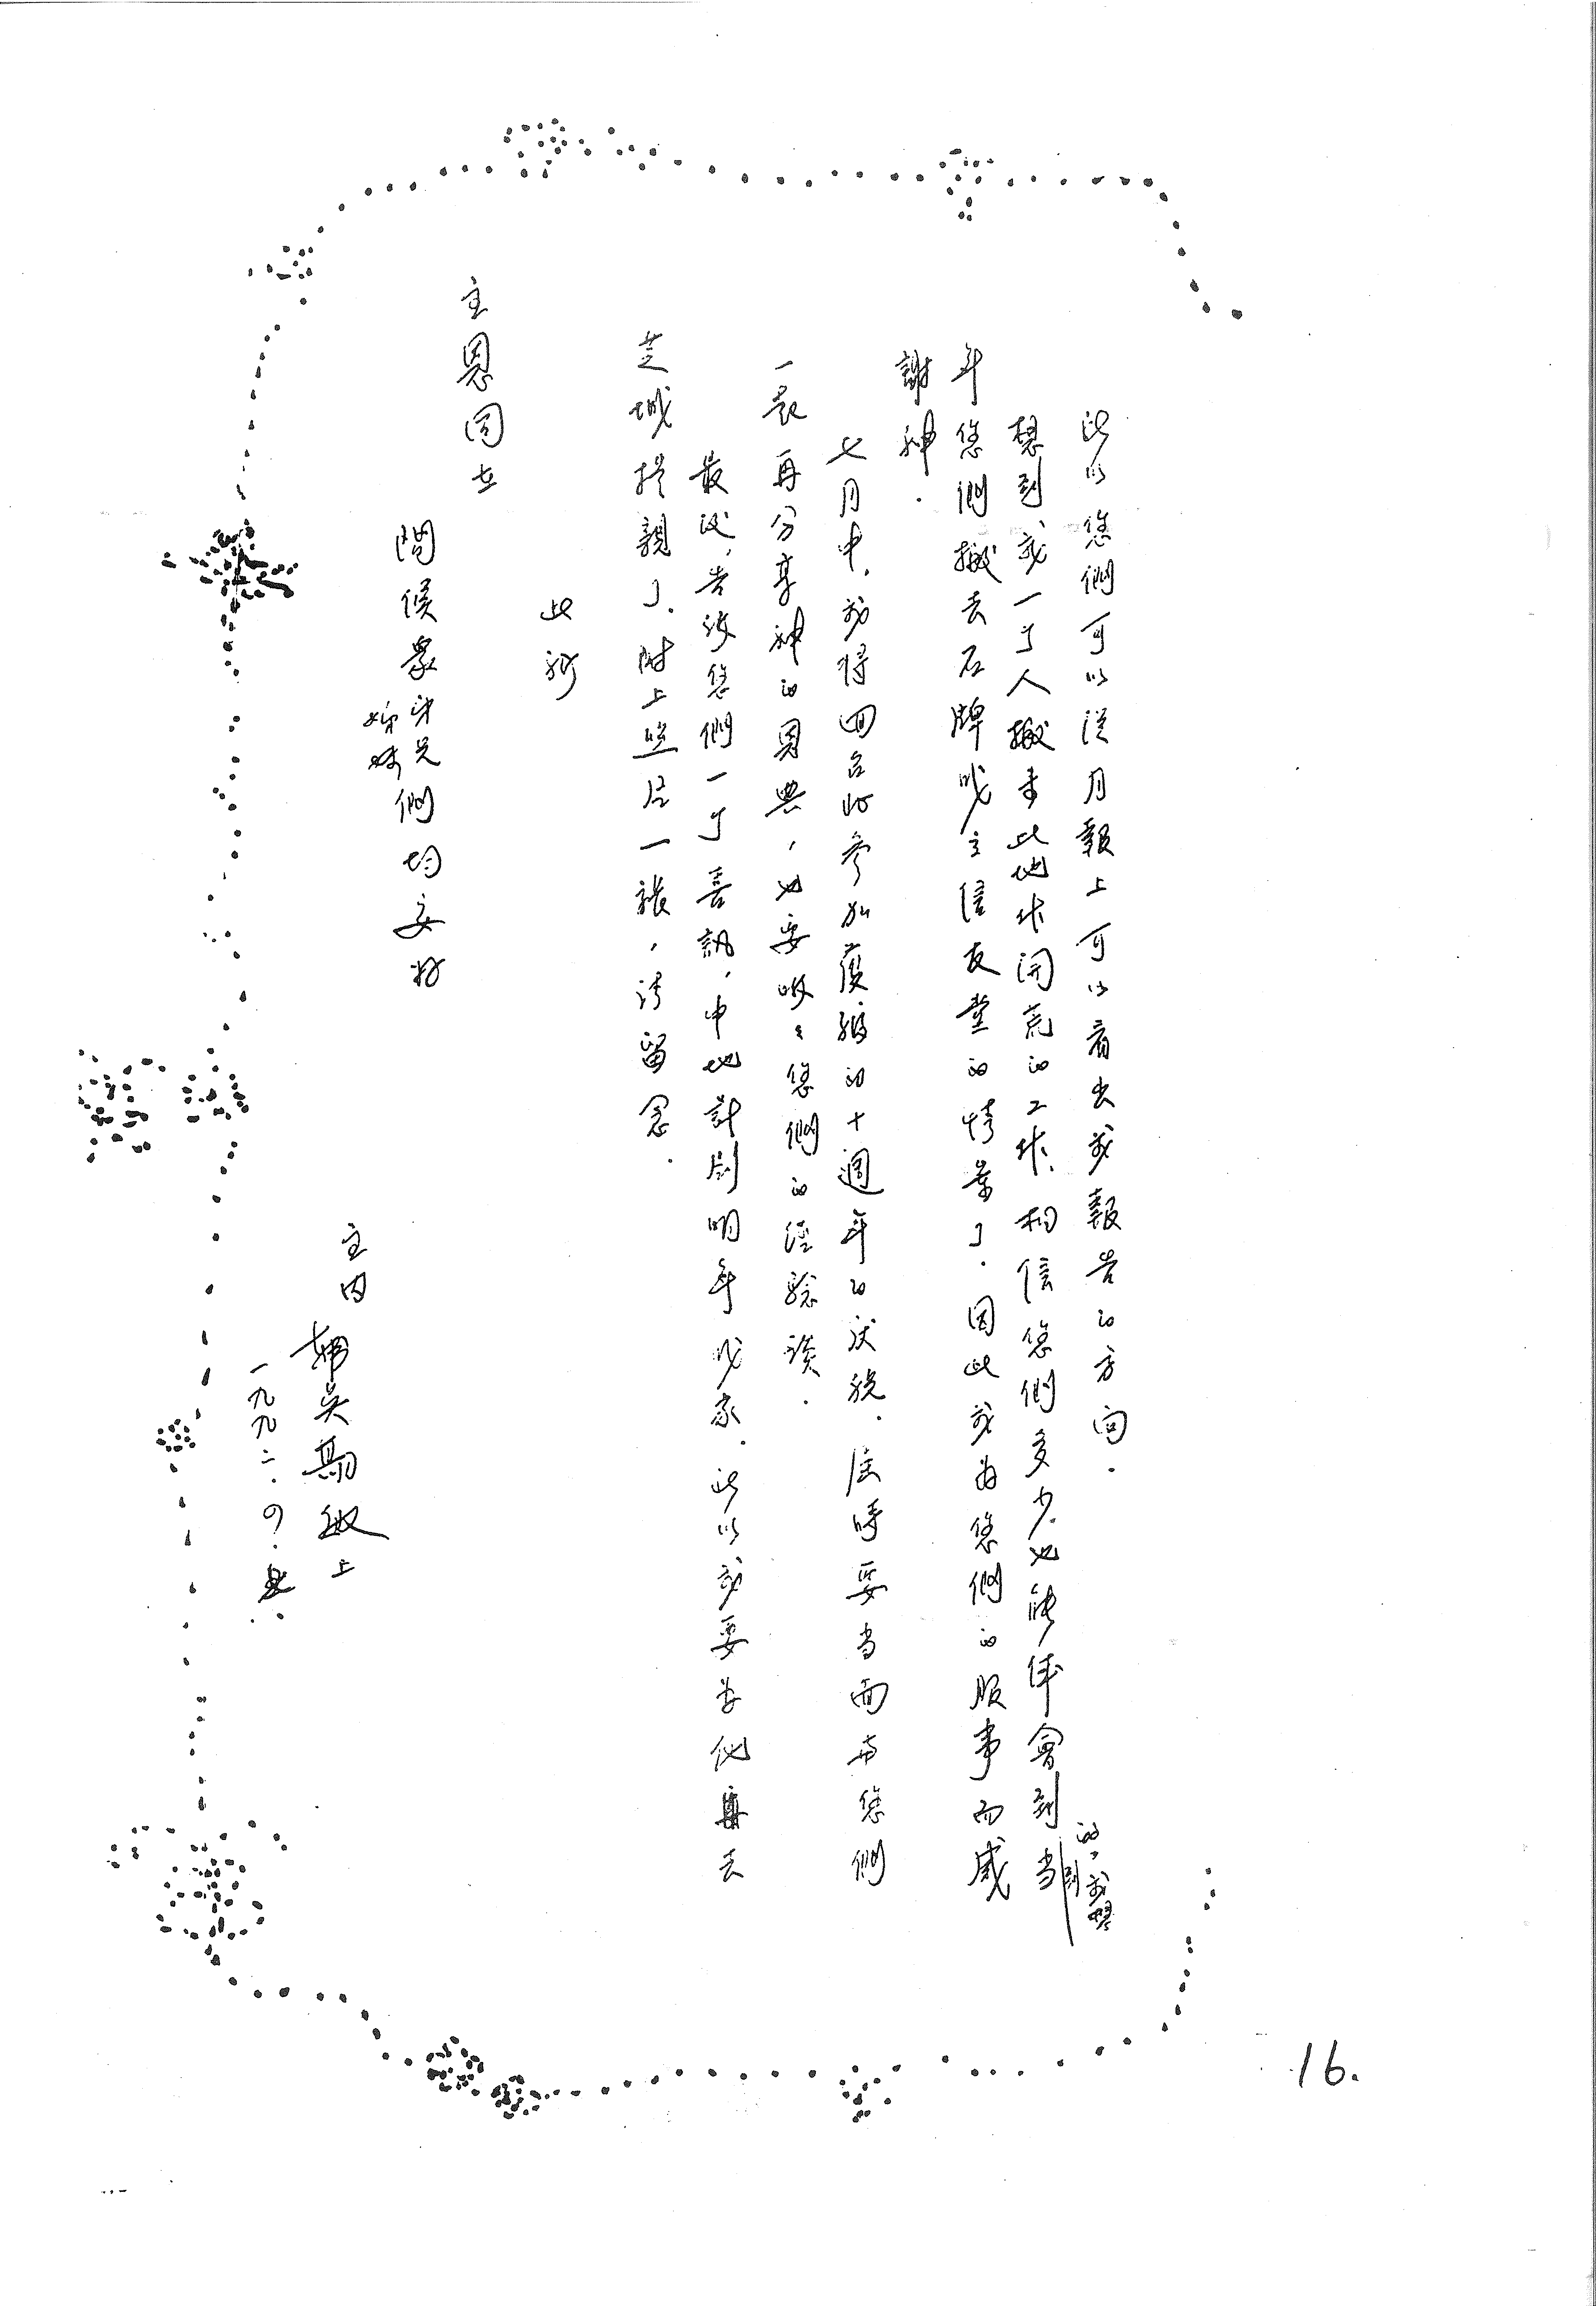 此以您們可以從月報上可以看出我報告的方向.
的,我
想到我一个人搬來此地作開荒的工作、相信您們多少也能体會到当
年您們搬去石牌成立信友堂的情景了.因此我為您們的服事而感
謝神.
七月中,我將回台北參加優緻的十週年的慶祝.屆時要当面与您們
一衷再分享神的恩典,也要收々您們的經驗談.
最後,告訴您們一个喜訊,中地計劃明年成家.此以我要為他專去
芝城提親了.附上照片一張,請留念.
此祈
主恩同在
問候眾弟兄
姊妹
們均安好
主內
吳 敏上
一九九二.
16.